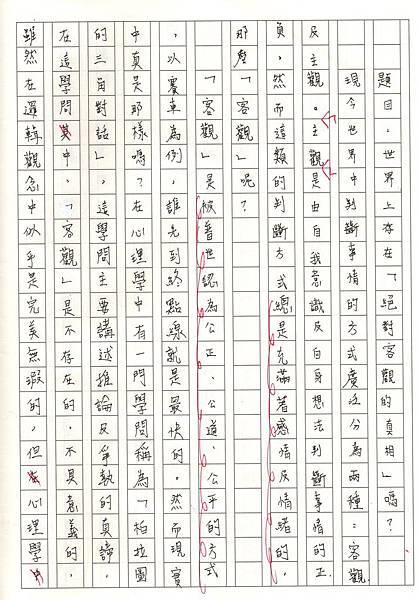 題目:世界上存在「絕對客觀的真相」嗎?
現今世界中判斷事情的方式廣泛的分為兩種:客觀
反主觀。主觀是由自我意識反自身想法判斷事情的正
負,然而這類的判斷方式總是充滿著感情及情緒的。
那麼「客觀」呢?
「客觀」是被普世認為公正、公道、公平的方式
,以賽車為例,誰先到終點線就是最快的。然而現實
中,真是那樣嗎?在心理學中有一門學問稱為「柏拉圖
的三角對話」,這學問主要講述推論及爭執的真諦,
在這學問其中,「客觀」是不存在的,不具意義的,
雖然在邏輯觀念中似乎是完美無瑕的,但心理學